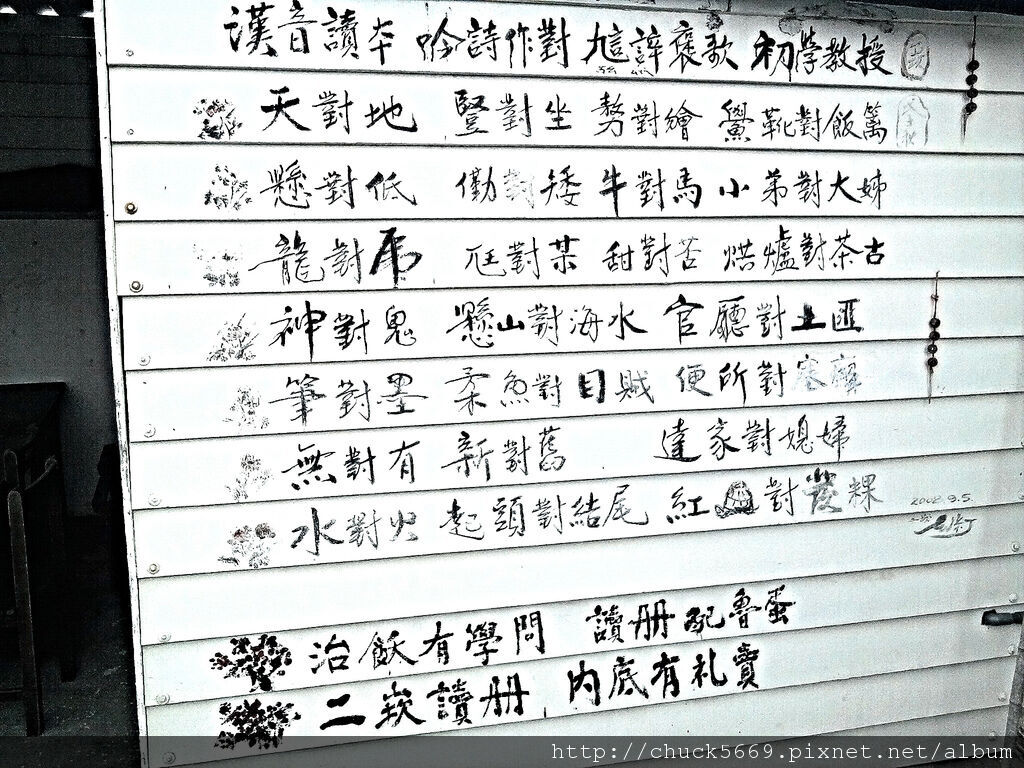 漢音讀本 吟詩作對 褒歌 初學教授
天對地 豎對坐 對繪 靴對飯篱
懸對低 對矮 牛對馬 小弟對大姊
龍對虎 尫對某 甜對苦 烘爐對茶古
神對鬼 懸山對海水 官廳對土匪
筆對墨 柔魚對目賊 便所對
無對有 新對舊 達家對媳婦
水對火 起頭對結尾 紅龜對發粿
2002.9.5.
治飫有學問 讀冊配魯蛋
二崁讀冊 內底有礼賣
http://chuck5669.pixnet.net/album